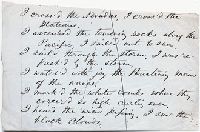 I cross'd the Nevadas, I cross'd the
Plateaus
I ascended the towering rocks along the
Pacific, I sailed out to sea,
I sailed through the storm, I was re-
fresh'd by the storm,
I watch'd with joy the threatening maws
of the waves,
I mark'd the white combs where they
career'd so high, curling over,
I heard the wind piping, I saw the
black clouds